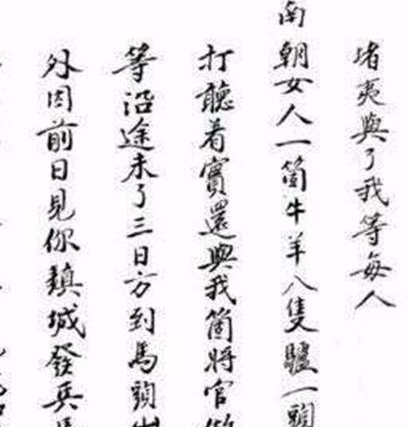 堵夷與了我等每人
南朝女人一箇牛羊八隻驢一頭
打聽着實還與我箇將官
等沿途未了三日方到馬頭
外因前日見你鎮城發兵馬